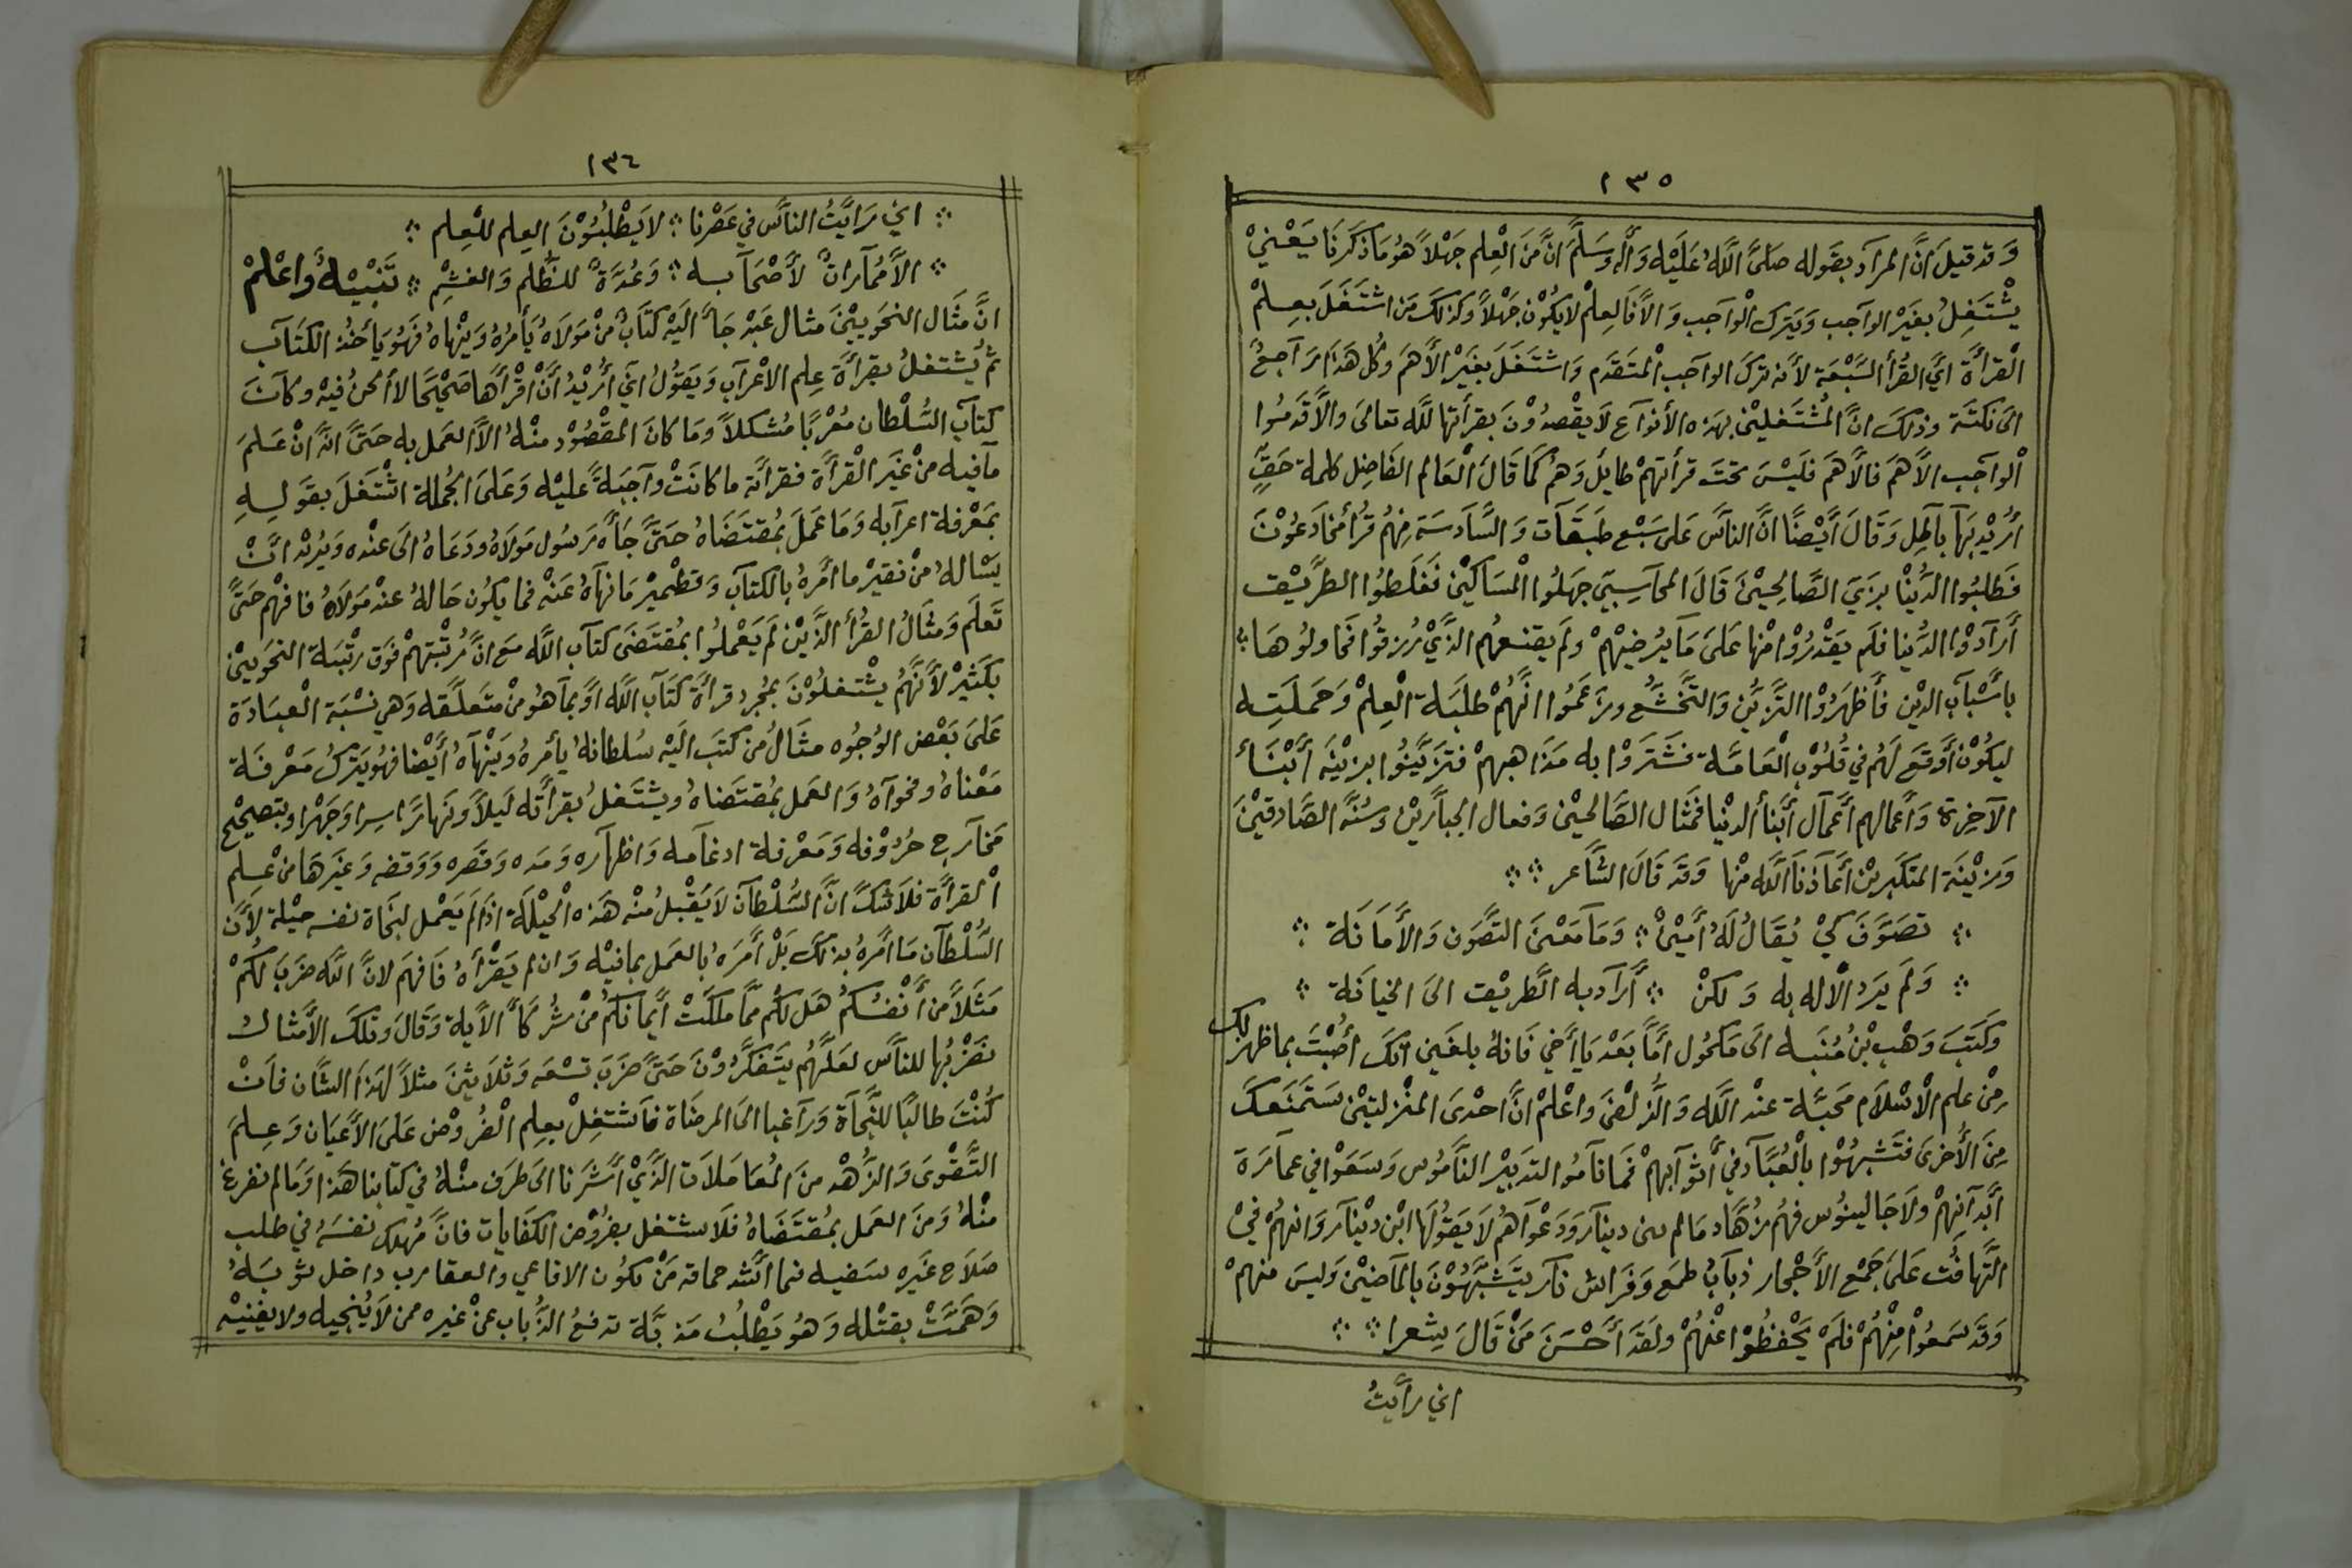 ١٣٥
وَقد قيلَ انَّ المرآد بقَوله صَلىَّ اللَّهُ عَلَيْه وَأله وَسَلَّمَ انَّ مَنَ الْعِلم جَهْلاً هُو مَا ذكَرنَا يَعْنيْ
يشْتَغِلُ بغَيْر الوآجب وَيَترك الْوآجب وَالاَّ فَالعِلمْ لا يَكُوْن جَهْلاً وَكذلكَ مَن اشتَغَلَ بعِلمْ
الْقرأَة ايَّ القُرأ السَّبْعَة لأنه تركَ الوآجب الْمتَقَدَّم وَاشتَغَلَ بغَيْر الأَهَم وَكُل هَذا رَآجعُ
الىَ نكتَة وذلكَ انَّ المُشْتَغليْن بهَذه الأنوآع لاَ يقْصدُوْنَ بقرأتها للَّه تعالىَ وَالاَّ قَدمُوا
الْوآجب الاَّهَم فالأهَمَ فلَيْسَ تحتَ قرأتهمْ طايلُ وَهمْ كَمَا قَالَ الْعَالم الفَاضِل كلمة حَقٍ
أرُيْد بَهآ بآطِل وَقَالَ أَيْضًا انَّ الناَّسَ عَلى سَبْع طبَقَآت وَالسَّآدسَة مِنهُم قُرأ مُخآدعُوْنَ
فطَلبُوا الدُّنْيا بزَيّ الصَّالِحيْنَ قَالَ المحآسِبيَ جَهلُوا الْمسَاكيْن فَغَلَطُوا الطَّرَيْق
أَرَآدوْا الدُّنيا فلَم يَقْدرُوْا مْنها عَلىَ مَا يُرضيْهمْ وَلَم يقنعهُم الذَّيْ رُزقُوا فحَاولُوهَا
باسَّبآب الدين فأَظهَرُوْا التَّزيُّن وَالتَّخَشُّع وَزعَمُوا انَّهُمْ طلَبَة الْعِلمْ وَحَملَتِه
ليَكُوْن أَوقَع لَهُم في قُلوُب الْعَامَّة فسَتَروْا به مَذَاهبهمْ فتزَيَّنُوا بزيْنَة أَبْنَاء
الآخِرَة وَأَعمالهم أَعمآل أَبنأ الدنْيا فمَثَال الصَّالحيْن وَفعال الجبآَّريْن وَسُنَّة الصَّادقيْنَ
وَزيْنَة المتكَبريْن أعَاذنَا اللَّه مْنها وَقَد قَالَ الشَّاعر
تصَوَّفَ كيْ يُقَالُ لَهُ أَميْنُ وَمَا مَعْنىَ التَّصَوّف وَالأَمَانَة
وَلَم يَرد الْالَه به وَلكنْ أَرآد به الطَّريْق الىَ الخيانَة
وَكَتَبَ وَهْب بْنُ مُنَبه الىَ مَكحُول أمَّا بَعْد يَا أَخي فَانهُ بلَغَني انَّكَ أَصَبْتَ بما ظهرَ لكَ
مِنْ عِلم الْاسْلاَم محَبَّة عنْد اللَّه وَالَّزلفىَ وَاعْلمْ انَّ احْدىَ المنْزلتيْن ستمنَعكَ
مِنَ الأُخرىَ فتَشبهُوْا بالْعُبَّآد في أَثوآبهمْ فمَا نآمُوا التدبيْر النَّآمُوس وَسعَوْا في عمآرَة
أبْدآنهمْ وَلاَ جَالينُوْس فهُم زُهَّاد مَا لم يرى دينآر وَدَعْوَآهُم لاَ يَقوُلهَا ابْن ديْنآر وَانهُم فيْ
التَّهافُت عَلىَ جَمْع الأَحْجار ذبآبُ طمَع وَفَراش نآر يتَشَبَّهُوْنَ بالمآضيْن وَليسَ منهمْ
وَقَد سَمعُوْا مِنْهُمْ فلَمْ يحْفظُوْا عنْهُمْ وَلقَد أَحْسَنَ مَنْ قَالَ شعرا
اني رَأيتُ
١٣٦
اني رَايَّتُ الناَّس في عَصْرنا لا يَطْلبُوْنَ العِلم للْعِلم
الاَّ مُبآراتً لأَصْحَآبه وَعُدَّةً للظُّلم وَالغشْم تَنْبيْهُ وَاعْلمْ
انَّ مثَال النحَوييْنَ مثال عَبْد جَآ الَيْه كتَابُ منْ مَولاَهُ يَأمُرهُ وَينْهاهُ فَهُوَ يَأخُذ الكتَآب
ثمَّ يشتغلُ بقرأَة علِم الاعْرآب وَيَقوُلُ اني أُريْدُ أَنْ أقْرأَها صَحيْحًا لا ألحنُ فيْه وَكآنَ
كتآب السُّلطان مُعْربًا مُشكلاً وَمَا كانَ المقصُوْد منْهُ الاَّ العَمل به حَتىَّ انهُ انْ عَلمَ
مآفيه منْ غَيْر الْقرأَة فقرأَته ما كانَتْ وَآجبَةً عليْه وَعَلىَ الجُملة اشْتَغلَ بقَولهِ
بمَعْرفة اعرآبه وَمَا عَملَ بمُقتَضَاهُ حَتىَّ جَأَهُ رَسُول مَولاَهُ وَدَعَاهُ الىَ عنْده وَيُريْد انَّ
يَسْالهُ منْ نقيْر ما أمَرهُ بالكتَآب وَقطْميْر مَا نهآهُ عَنْه فما يَكوُن حَالهُ عنْد مَولاَهُ فافهمْ حَتىَّ
تَعلَم وَمثَالُ القُرأ الذَّيْن لَم يَعْملُوا بمُقتَضىَ كتآب اللَّه مَع انَّ مُرتْبتهمْ فوَق رتْبَة النحَوييْن
بكثيْر لأَنَّهمُ يشْتَغلُوْنَ بمُجرد قرأَة كتَآب اللَّه أَوْ بمآ هُوَ منْ متَعلَّقه وَهي نسْبَة الْعبَادَة
عَلىَ بَعْض الوُجُوه مثَالُ مَن كتبَ الَيْه سُلطانهُ يأمرهُ وَيَنْهآهُ أَيْضا فهُوَ يَتركُ مَعْرفَة
مَعْناهُ وَفحَوآهُ وَالعَمل بمُقتَضَاهُ وَيشتَغلُ بقرأَته لَيلاً وَنَهارًا سِرا وَجَهْرا وَبتصحيْح
مخَآرج حرُوْفه وَمَعْرفة ادغآمه وَاظهآره وَمَده وَقصَره وَوقفه وَغيْرهَا منْ عِلم
الْقرأَة فلاَشكَّ انَّ السُّلطآن لاَ يَقْبلُ منْه هَذه الْحيْلَة اذَا لَم يَعْمل لنجَاة نفسه حيْلة لأَنَّ
السُّلْطآن مَا أمرهُ بذلكَ بَلْ أَمَرهُ بالعَمل بما فيْه وَان لم يَقْرأهُ فَافهَم لانَّ اللَّه ضَربَ لكُمْ
مَثَلاً من أَنْفسُكمُ هَل لكُم ممَّا ملكَتْ أيْمانُكم منْ شُركَأ الأيَة وَقَالَ وَتلكَ الأَمثال
نضَرْبُها للناَّس لعَلَّهُم يَتَفكَّرُوْنَ حَتىَّ ضَربَ تسْعَه وَثلاَثيْنَ مثلاً لهَذَا الشَّان فاَنْ
كُنْتَ طالبًا للنَّجَآة وَرآغبا الىَ المرضَاة فَآشتغِلْ بعِلم الْفرُوْض عَلىَ الأَعْيَان وَعِلمَ
التَّقْوىَ وَالزُّهْد منَ المُعَامَلاَت الذَّيْ أَشَرَنا الىَ طَرف منْهُ في كتَابنا هَذا وَمَا لم نفرغ
منْهُ وَمنَ العَمل بمُقتَضَاهُ فلاَ يشتغل بفرُوْض الكَفايات فانَّ مُهْلك نفسَهُ في طلب
صَلاَح غَيْره سَفيه فما اشَّد حماقه مَنْ تكُون الافاعي وَالعقارب داخل ثوْبهُ
وَهَمَّتْ بقتْله وَهُو يَطْلبُ مَذبَّة تدفعُ الذُّباب عنْ غيره ممن لاَ يُنْجيه وَلا يغْنيْه